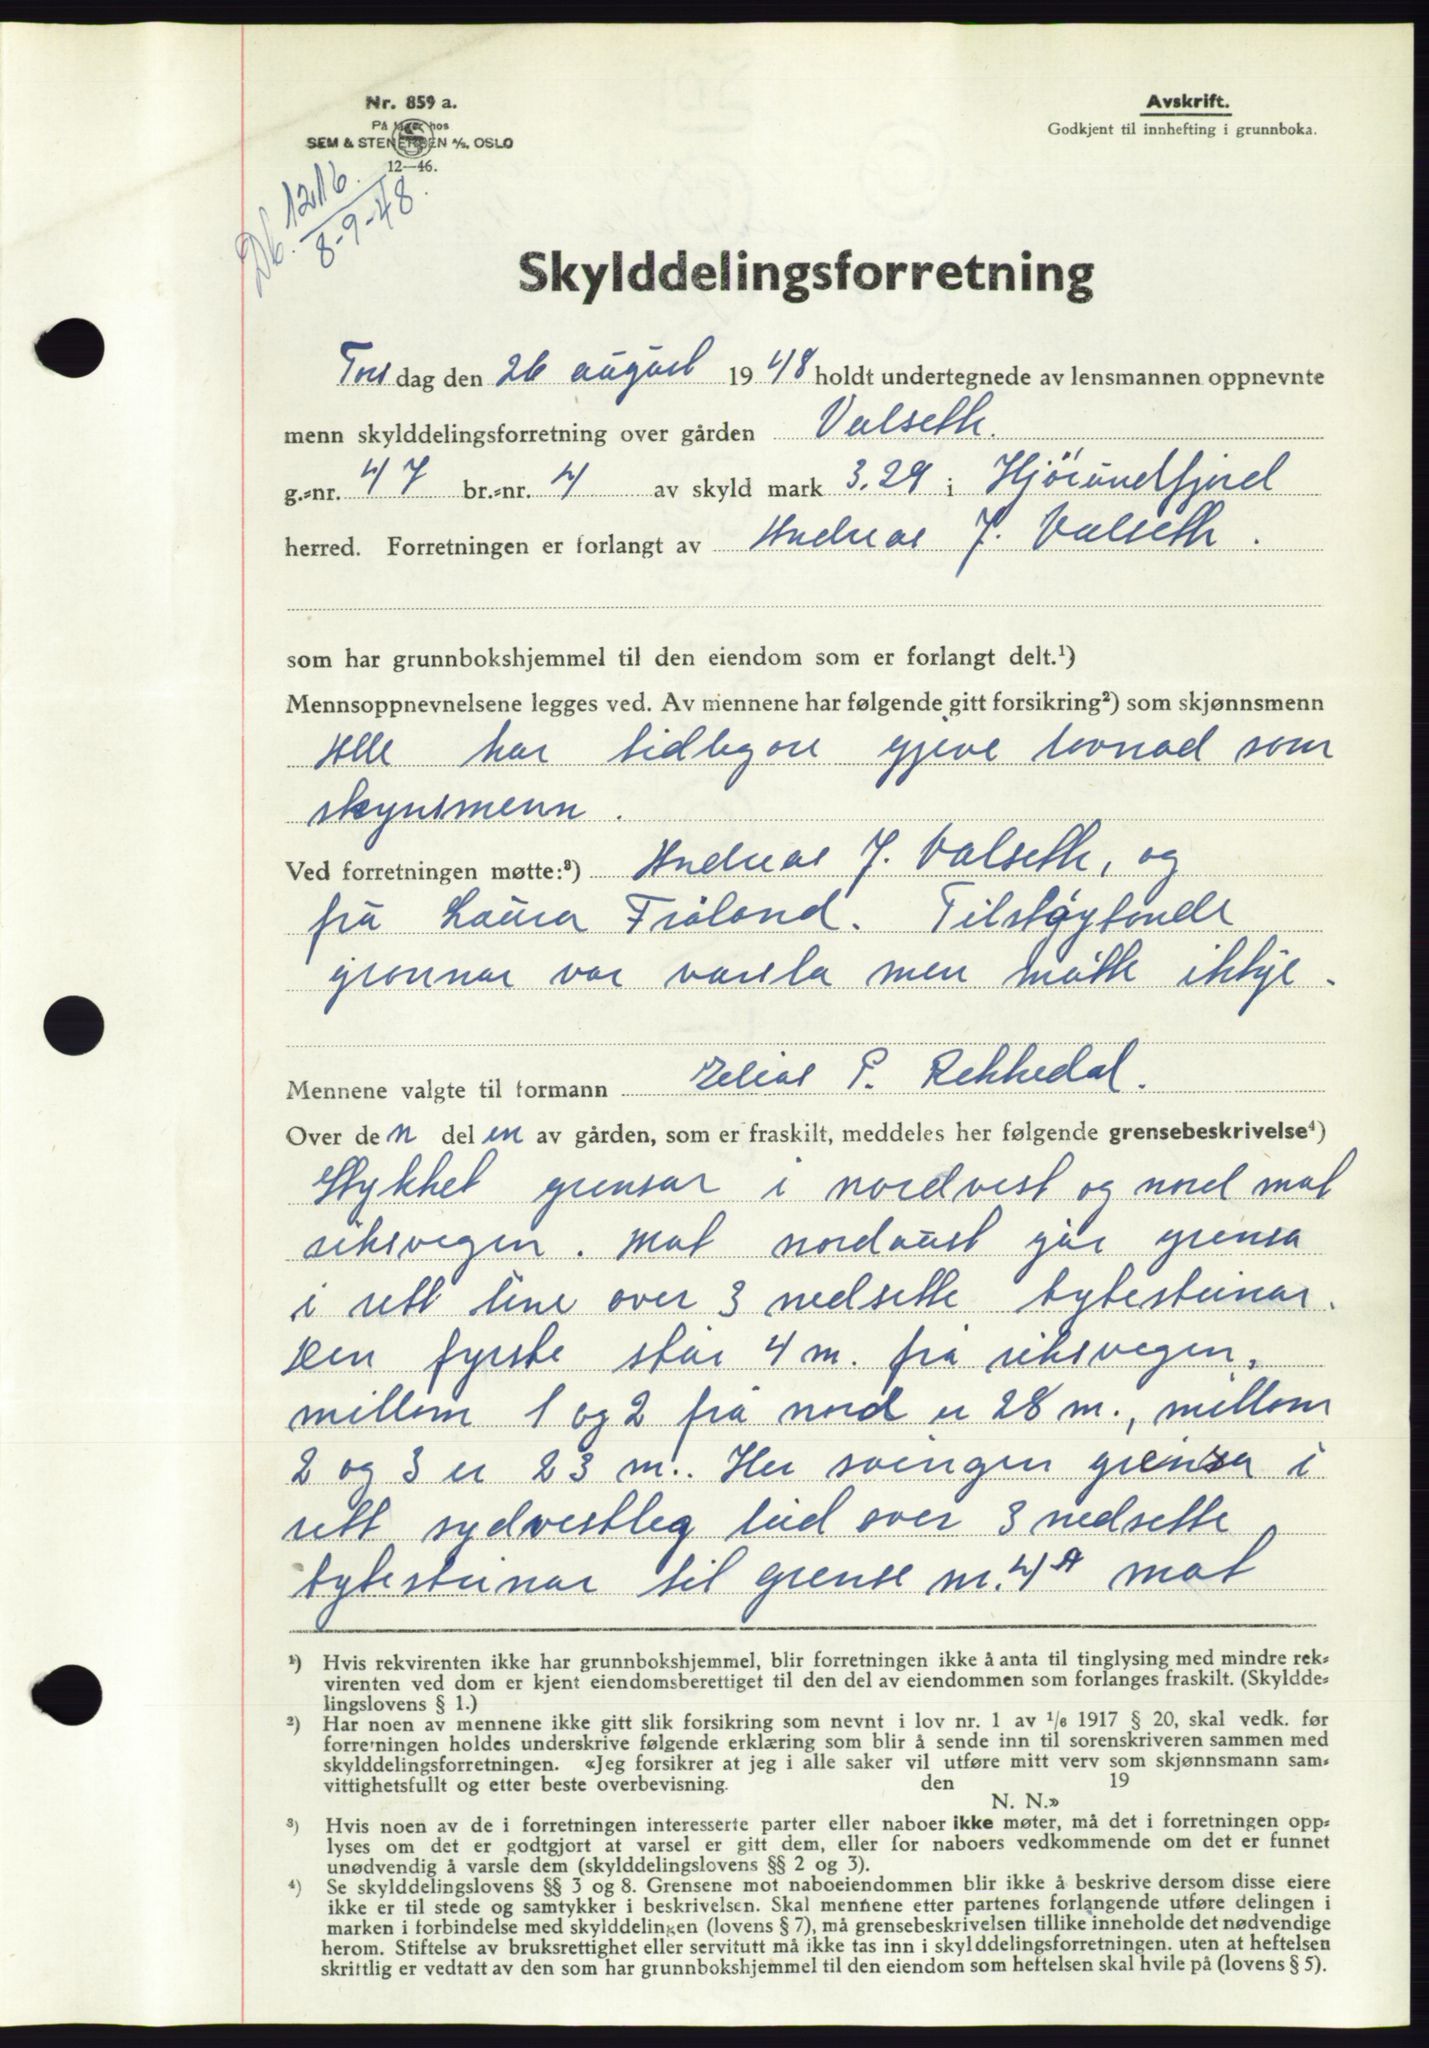 Nr. 859 a.
På lager hos
SEM & STENERSEN A/S, OSLO
12—46.
Avskrift.
Godkjent til innhefting i grunnboka.
Db. 1216
8-9-48.
Skylddelingsforretning
Tors dag den 26 august 19 48 holdt undertegnede av lensmannen oppnevnte
menn skylddelingsforretning over gården Valseth.
g.=nr. 47 br.=nr. 4 av skyld mark 3.29 i Hjörundfjord
herred. Forretningen er forlangt av Andreas J. Valseth.
som har grunnbokshjemmel til den eiendom som er forlangt delt.¹)
Mennsoppnevnelsene legges ved. Av mennene har følgende gitt forsikring²) som skjønnsmenn
Alle har tidlegare gjeve lovnad som
skynsmenn.
Ved forretningen møtte:³) Andreas J. Valseth, og
frú Laura Fråland. Tilstøytande
grannar var varsla men møtte ikkje.
Mennene valgte til formann Elias P. Rekkedal.
Over de n del en av gården, som er fraskilt, meddeles her følgende grensebeskrivelse⁴)
Stykket grensar i nordvest og nord mot
riksvegen. Mot nordaust går grensa
i rett line over 3 nedsette bytesteinar.
Den fyrste står 4 m. frå riksvegen,
millom 1 og 2 frå nord er 28 m., millom
2 og 3 er 23 m.. Her svingen grensa i
rett sydvestleg leid over 3 nedsette
bytesteinar til grense m. 4 A mot
¹) Hvis rekvirenten ikke har grunnbokshjemmel, blir forretningen ikke å anta til tinglysing med mindre rek=
virenten ved dom er kjent eiendomsberettiget til den del av eiendommen som forlanges fraskilt. (Skyldde=
lingslovens § 1.)
²) Har noen av mennene ikke gitt slik forsikring som nevnt i lov nr. 1 av 1/6 1917 § 20, skal vedk. før
forretningen holdes underskrive følgende erklæring som blir å sende inn til sorenskriveren sammen med
skylddelingsforretningen. «Jeg forsikrer at jeg i alle saker vil utføre mitt verv som skjønnsmann sam=
vittighetsfullt og etter beste overbevisning. den 19
N. N.»
³) Hvis noen av de i forretningen interesserte parter eller naboer ikke møter, må det i forretningen opp=
lyses om det er godtgjort at varsel er gitt dem, eller for naboers vedkommende om det er funnet
unødvendig å varsle dem (skylddelingslovens §§ 2 og 3).
⁴) Se skylddelingslovens §§ 3 og 8. Grensene mot naboeiendommen blir ikke å beskrive dersom disse eiere
ikke er til stede og samtykker i beskrivelsen. Skal mennene etter partenes forlangende utføre delingen i
marken i forbindelse med skylddelingen (lovens § 7), må grensebeskrivelsen tillike inneholde det nødvendige
herom. Stiftelse av bruksrettighet eller servitutt må ikke tas inn i skylddelingsforretningen. uten at heftelsen
skriftlig er vedtatt av den som har grunnbokshjemmel til den eiendom som heftelsen skal hvile på (lovens § 5).